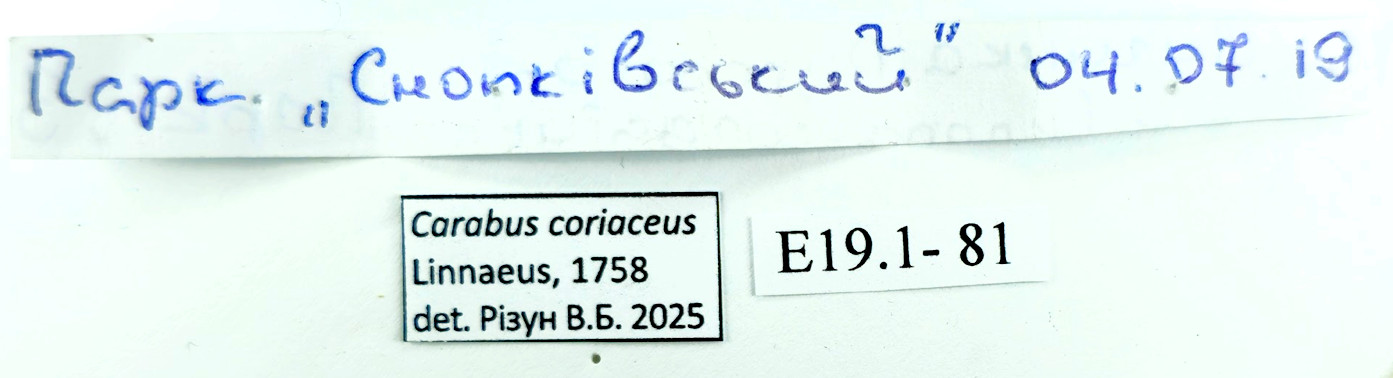 Парк „Снопківський" 04.07.19
Carabus coriaceus
Linnaeus, 1758
det. Різун В.Б. 2025
E19.1- 81